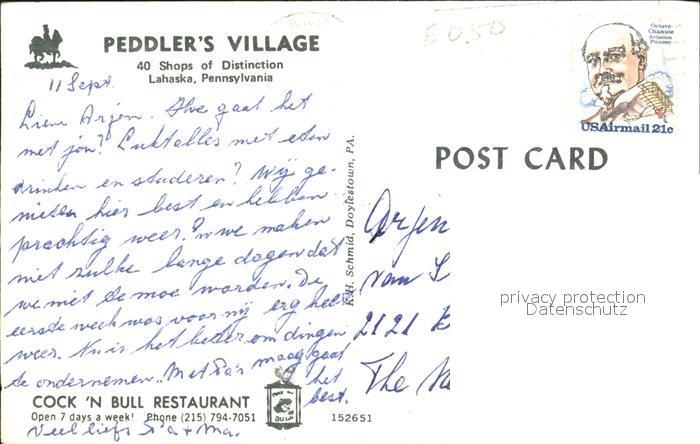 PEDDLER'S VILLAGE
40 Shops of Distinction
Lahaska, Pennsylvania
11 Sept.
Lieve Arjen. Hoe gaat het
met jou? Lukt alles met eten
drinken en studeren? Wij ge-
nieten hier best en hebben
prachtig weer. En we maken
niet zulke lange dagen dat
we niet te moe worden. De
eerste week was voor mij erg heet
weer. Nu is het beter om dingen
te ondernemen. Met Pa's maag gaat
het
best.
Veel liefs Pa + Ma.
COCK 'N BULL RESTAURANT
Open 7 days a week! Phone (215) 794-7051
K.H. Schmid, Doylestown, PA.
152651
E 0.50
Octave
Chanute
Aviation
Pioneer
USAirmail 21c
POST CARD
Arjen
van
2121
The
privacy protection
Datenschutz